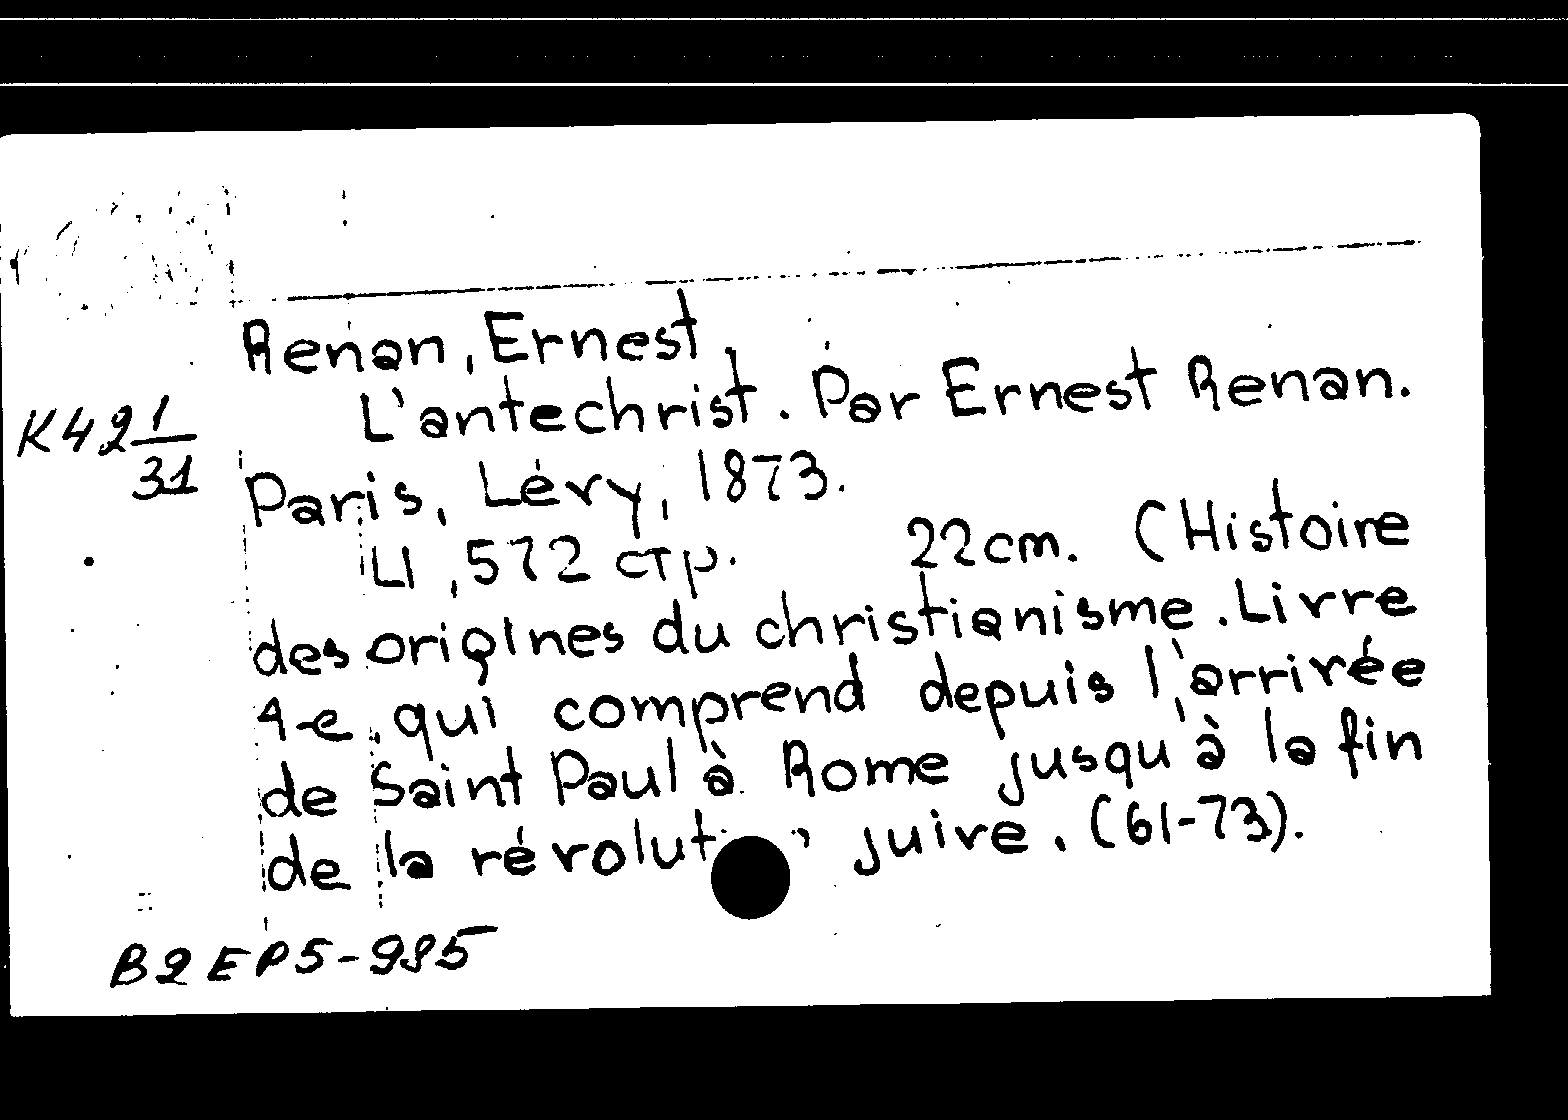 Renan, Ernest.
L'antechrist. Par Ernest Renan.
K42 1/31
Paris, Lévy, 1873.
LI, 572 стр. 22cm. (Histoire
des origines du christianisme. Livre
4-e, qui comprend depuis l'arrivée
de Saint Paul à Rome jusqu'à la fin
de la révolut juive. (61-73).
B2EP5-985